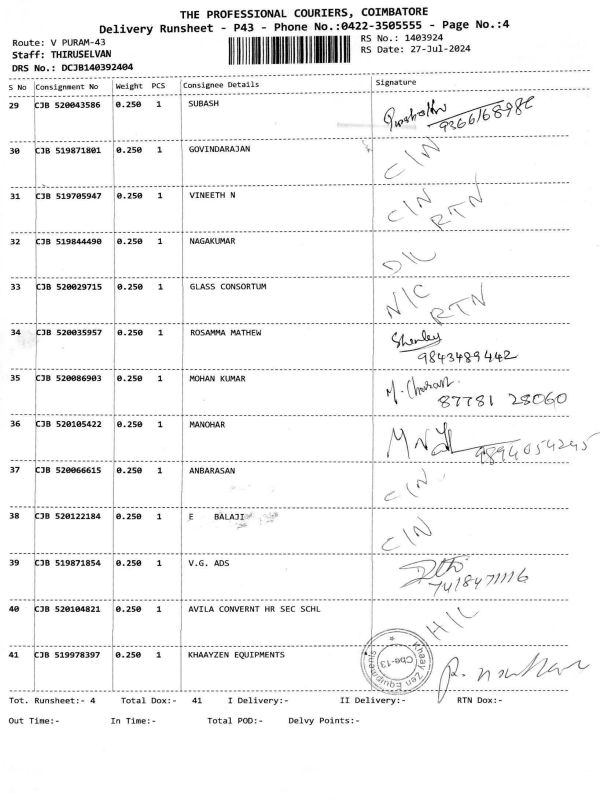 THE PROFESSIONAL COURIERS, COIMBATORE
Delivery Runsheet - P43 - Phone No.:0422-3505555 - Page No.:4
Route: V PURAM-43
RS No.: 1403924
Staff: THIRUSELVAN
RS Date: 27-Jul-2024
DRS No.: DCJB140392404
S No Consignment No Weight PCS Consignee Details Signature
29 CJB 520043586 0.250 1 SUBASH
30 CJB 519871801 0.250 1 GOVINDARAJAN C/N
31 CJB 519705947 0.250 1 VINEETH N C/N RTN
32 CJB 519844490 0.250 1 NAGAKUMAR D/L
33 CJB 520029715 0.250 1 GLASS CONSORTUM N/C RTN
34 CJB 520035957 0.250 1 ROSAMMA MATHEW Sherley
9843489442
35 CJB 520086903 0.250 1 MOHAN KUMAR M. Charan
87781 28060
36 CJB 520105422 0.250 1 MANOHAR
9894054245
37 CJB 520066615 0.250 1 ANBARASAN C/N
38 CJB 520122184 0.250 1 E BALAJI C/N
39 CJB 519871854 0.250 1 V.G. ADS
7418471116
40 CJB 520104821 0.250 1 AVILA CONVERNT HR SEC SCHL H/L
41 CJB 519978397 0.250 1 KHAAYZEN EQUIPMENTS
Khaay Zen Equipments
Cbe-13
Tot. Runsheet:- 4 Total Dox:- 41 I Delivery:- II Delivery:- RTN Dox:-
Out Time:- In Time:- Total POD:- Delvy Points:-